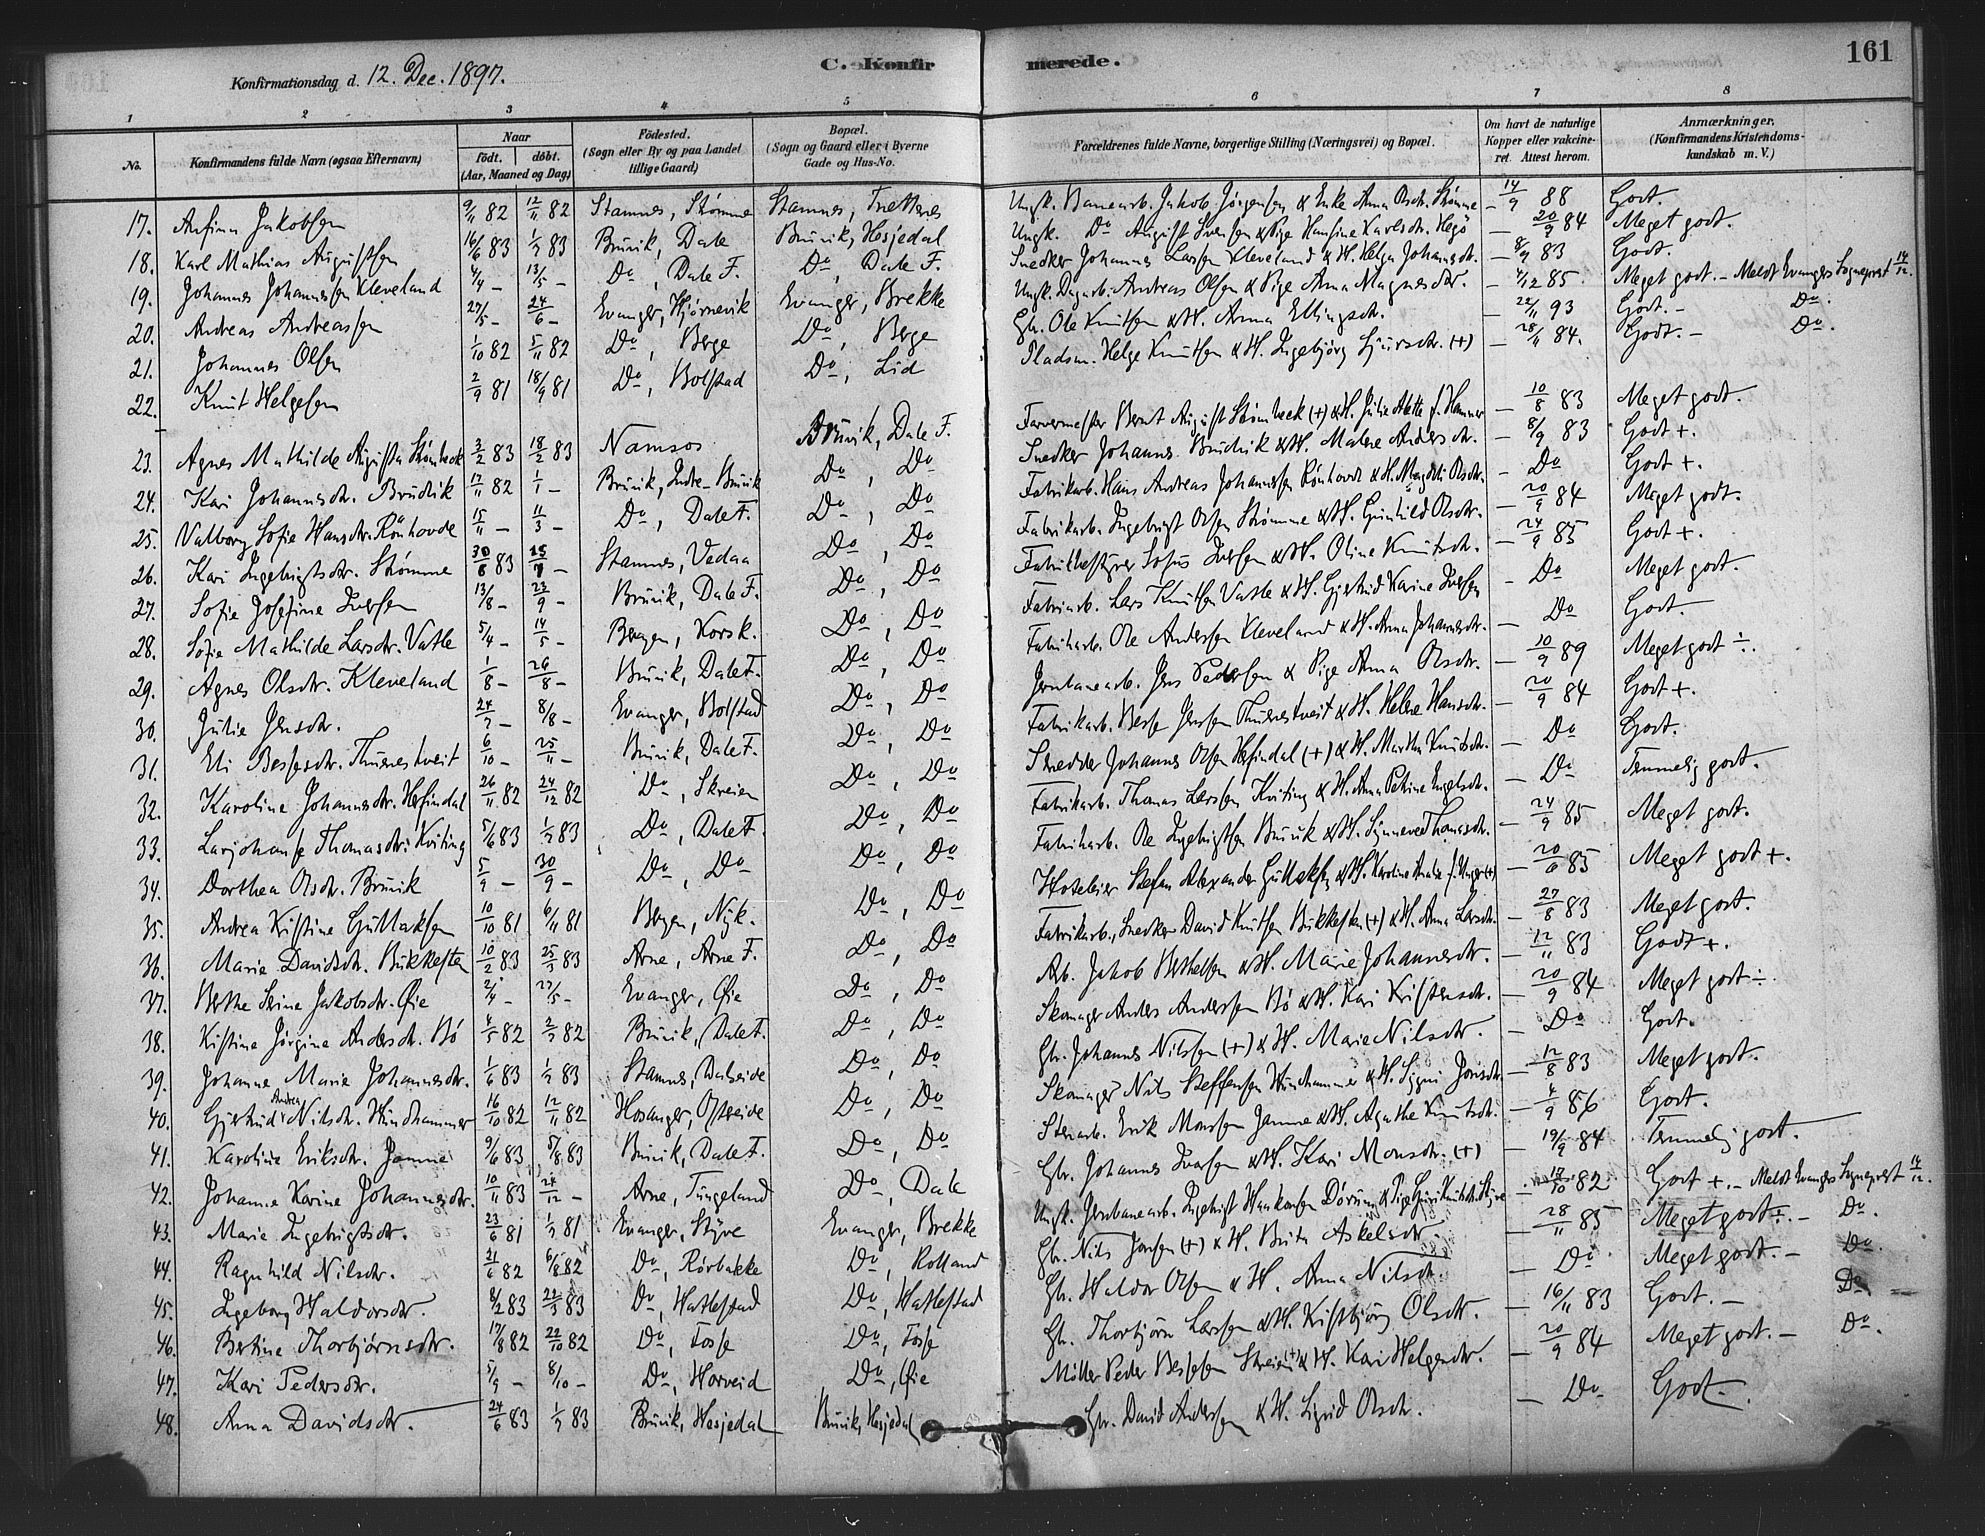 161
Konfirmationsdag d. 12. Dec. 1897.
C. Konfirmerede.
1 2 3 4 5 6 7 8
No.
Konfirmandens fulde Navn (ogsaa Efternavn)
Naar
födt. döbt.
(Aar, Maaned og Dag)
Födested.
(Sogn eller By og paa Landet
tillige Gaard)
Bopæl.
(Sogn og Gaard eller i Byerne
Gade og Hus-No.
Forældrenes fulde Navne, borgerlige Stilling (Næringsvei) og Bopæl.
Om havt de naturlige
Kopper eller vakcine-
ret. Attest herom.
Anmærkninger.
(Konfirmandens Kristendoms-
kundskab m. V.)
17. Anfinn Jakobsen 9/11 82 12/11 82 Stamnes, Strømme Stamnes, Ungk. Banearb. Jakob Jørgensen & Enke Anna Olsdtr. Strømme – 14/9 88 Godt.
18. Karl Mathias Augustsen 16/6 83 1/7 83 Bruvik, Dale Bruvik, Hesjedal Ungk. Do August Svensen & Pige Hansine Karlsdtr. Hegö – 20/9 84 Meget godt.
19. Johannes Johannessen Kleveland 4/4 – 13/5 – Do, Dale F. Do, Dale F. Snedker Johannes Larsen Kleveland & H. Helga Johannsdtr. – 8/9 83 Godt.
20. Andreas Andreassen 27/5 – 24/6 – Evanger, Hjørnevik Evanger, Brekke Ungk. Dagarb. Andreas Olsen & Pige Anna Magnesdtr. – 4/12 85. Meget godt. – Meldt Evangers Sogneprest 14/12.
21. Johannes Olsen 1/10 82 5/11 82 Do, Berge Do, Berge Gbr. Ole Knutsen & H. Anna Ellingsdtr. – 22/11 93 Godt. – Do.
22. Knut Helgesen 2/9 81 18/9 81 Do, Bolstad Do, Lid Pladsm. Helge Knutsen & H. Ingebjørg Sjursdtr. (+) – 28/11 84. Godt. – Do.
23. Agnes Mathilde Augusta Strømbeck 3/2 83 18/2 83 Namsos Bruvik, Dale F. Farvermester Bernt August Strømbeck (+) & H. Julie Alette f. Hammer – 10/8 83 Meget godt.
24. Kari Johannesdtr. Brudvik 17/11 82 1/1 – Bruvik, Indre-Bruvik Do, Do Snedker Johannes Brudvik & H. Malene Andersdtr. – 8/9 83 Godt +.
25. Valborg Sofie Hansdtr. Rönhovde 15/11 – 11/3 – Do, Dale F. Do, Do Fabrikarb. Hans Andreas Johannessen Rönhovde & H. Olsdtr. – Do Godt +.
26. Kari Ingebrigtsdtr. Strømme 30/6 83 – Stamnes, Vedaa Do, Do Fabrikarb. Ingebrigt Olsen Strømme & H. Gunhild Olsdtr. – 20/9 84 Meget godt.
27. Sofie Josefine Iversen 13/8 – 23/9 – Bruvik, Dale F. Do, Do Fabrikbestyrer Sofus Iversen & H. Oline Knutsdtr. – 24/9 85 Godt +.
28. Sofie Mathilde Larsdtr. Vatle 5/4 – 14/5 – Bergen, Korsk. Do, Do Fabrikarb. Lars Knutsen Vatle & H. Gjertrud Karine Iversen – Do Meget godt.
29. Agnes Olsdtr. Kleveland 1/8 – 26/8 – Bruvik, Dale F. Do, Do Fabrikarb. Ole Andersen Kleveland & H. Anna Johannesdtr. – Do Godt.
30. Julie Jensdtr. 24/7 – 8/8 – Evanger, Bolstad Do, Do Jernbanearb. Jens Pedersen & Pige Anna Olsdtr. – 10/9 89 Meget godt ÷.
31. Eli Bessesdtr. Thunestveit 6/10 – 25/11 – Bruvik, Dale F. Do, Do Fabrikarb. Besse Jensen Thunestveit & H. Helene Hansdtr. – 20/9 84 Godt +.
32. Karoline Johannesdtr. Herfindal 26/11 82 24/12 82 Do, Skreien Do, Do Skredder Johannes Olsen Herfindal (+) & H. Martha Knutsdtr. – Do Godt.
33. Larjohanse Thomasdtr. Kviting 5/6 83 1/7 83 Do, Dale F. Do, Do Fabrikarb. Thomas Larsen Kviting & H. Anna Petrine Ingelsdtr. – Do Temmelig godt.
34. Dorthea Olsdtr. Bruvik 5/9 – 30/9 – Do, Do Do, Do Fabrikarb. Ole Ingebrigtsen Bruvik & H. Synneve Thomasdtr. – 24/9 85 Meget godt.
35. Andrea Kristine Gullaksen 10/10 81 6/11 81 Bergen, Nyk. Do, Do Hoteleier Stefan Alexander Gullaksen & H. Karoline (+) – 20/6 85 Meget godt +.
36. Marie Davidsdtr. Bukkesten 10/2 83 25/3 83 Arne, Arne F. Do, Do Fabrikarb., Snedker David Knutsen Bukkesten (+) & H. Anna Larsdtr. – 27/8 83 Meget godt.
37. Berthe Serine Jakobsdtr. Øie 2/4 – 27/5 – Evanger, Øie Do, Do Arb. Jakob Berthelsen & H. Marie Johannesdtr. – 12/11 83 Godt +.
38. Kristine Jørgine Andersdtr. Bö 4/5 82 2/7 82 Bruvik, Dale F. Do, Do Skomager Anders Andersen Bö & H. Kari Kristensdtr. – 20/9 84 Meget godt ÷
39. Johanne Marie Johannesdtr. 1/6 83 1/7 83 Stamnes, Dalseide Do, Do Gbr. Johannes Nilssen (+) & H. Marie Nilsdtr. – Do Godt.
40. Gjertrud Andrea Nilsdtr. Hundhammer 16/10 82 12/11 82 Hosanger, Ostreide Do, Do Skomager Nils Steffensen Hundhammer & H. Signi Jonsdtr. – 12/8 83 Meget godt.
41. Karoline Eriksdtr. Jamne 9/6 83 5/8 83 Bruvik, Dale F. Do, Do Stenarb. Erik Monsen Jamne & H. Agathe Knutsdtr. – 4/9 86 Godt.
42. Johanne Karine Johannesdtr. 10/11 83 24/12 – Arne, Tungeland Do, Dale Gbr. Johannes Ivarsen & H. Kari Monsdtr. (+) – 19/9 84 Temmelig godt.
43. Marie Ingebrigtsdtr. 23/6 81 1/7 81 Evanger, Styve Evanger, Brekke Ungk. Jernbanearb. Ingebrigt Haakonsen Dörum & Pige Guri Knutsdtr. Styve – 82 Godt +. – Meldt Evangers Sogneprest 14/12.
44. Ragnhild Nilsdtr. 21/6 82 6/8 82 Do, Rørbakke Do, Rolland Gbr. Nils Jonsen (+) & H. Brita Askelsdtr. – 28/11 85 Meget godt ÷. – Do.
45. Ingeborg Haldorsdtr. 8/2 83 22/3 83 Do, Hatlestad Do, Hatlestad Gbr. Haldor Olsen & H. Anna Nilsdtr. – Do Meget godt. – Do.
46. Bertine Thorbjørnsdtr. 17/8 82 22/10 82 Do, Fosse Do, Fosse Gbr. Thorbjörn Larsen & H. Kristbjörg Olsdtr. – 16/11 83 Godt. – Do
47. Kari Pedersdtr. 5/9 – 8/10 – Do, Horveid Do, Øie Möller Peder Bessesen Skreien (+) & H. Kari Helgesdtr. – 20/9 84 Meget godt. – Do.
48. Anna Davidsdtr. 24/6 83 1/7 83 Bruvik, Hesjedal Bruvik, Hesjedal Gbr. David Andersen & H. Sigrid Olsdtr. – Do Godt.